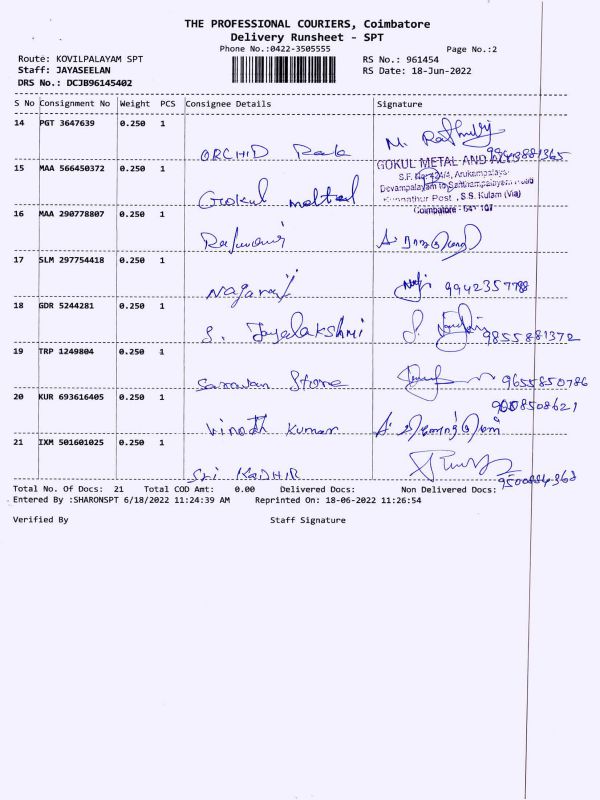 THE PROFESSIONAL COURIERS, Coimbatore
Delivery Runsheet - SPT
Phone No.:0422-3505555
Page No.:2
Route: KOVILPALAYAM SPT
RS No.: 961454
Staff: JAYASEELAN
RS Date: 18-Jun-2022
DRS No.: DCJB96145402
S No Consignment No Weight PCS Consignee Details Signature
14 PGT 3647639 0.250 1
ORCHID
15 MAA 566450372 0.250 1
GOKUL METAL AND
Devampalayam to
Post, S.S. Kulam (Via)
Coimbatore - 641 107
Gokul
16 MAA 290778807 0.250 1
17 SLM 297754418 0.250 1
Nagaraj 9942357788
18 GDR 5244281 0.250 1
S. Jayalakshmi 9855881372
19 TRP 1249804 0.250 1
Saravan Stone 9655850786
20 KUR 693616405 0.250 1
Vinoth Kumar
21 IXM 501601025 0.250 1
Sri KADHIR
Total No. Of Docs: 21 Total COD Amt: 0.00 Delivered Docs: Non Delivered Docs:
Entered By :SHARONSPT 6/18/2022 11:24:39 AM Reprinted On: 18-06-2022 11:26:54
Verified By Staff Signature